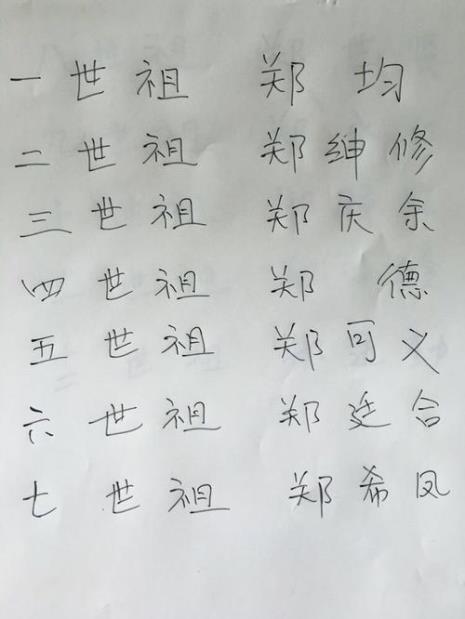 一世祖 郑均
二世祖 郑绅修
三世祖 郑庆余
四世祖 郑德
五世祖 郑可义
六世祖 郑廷合
七世祖 郑希凤